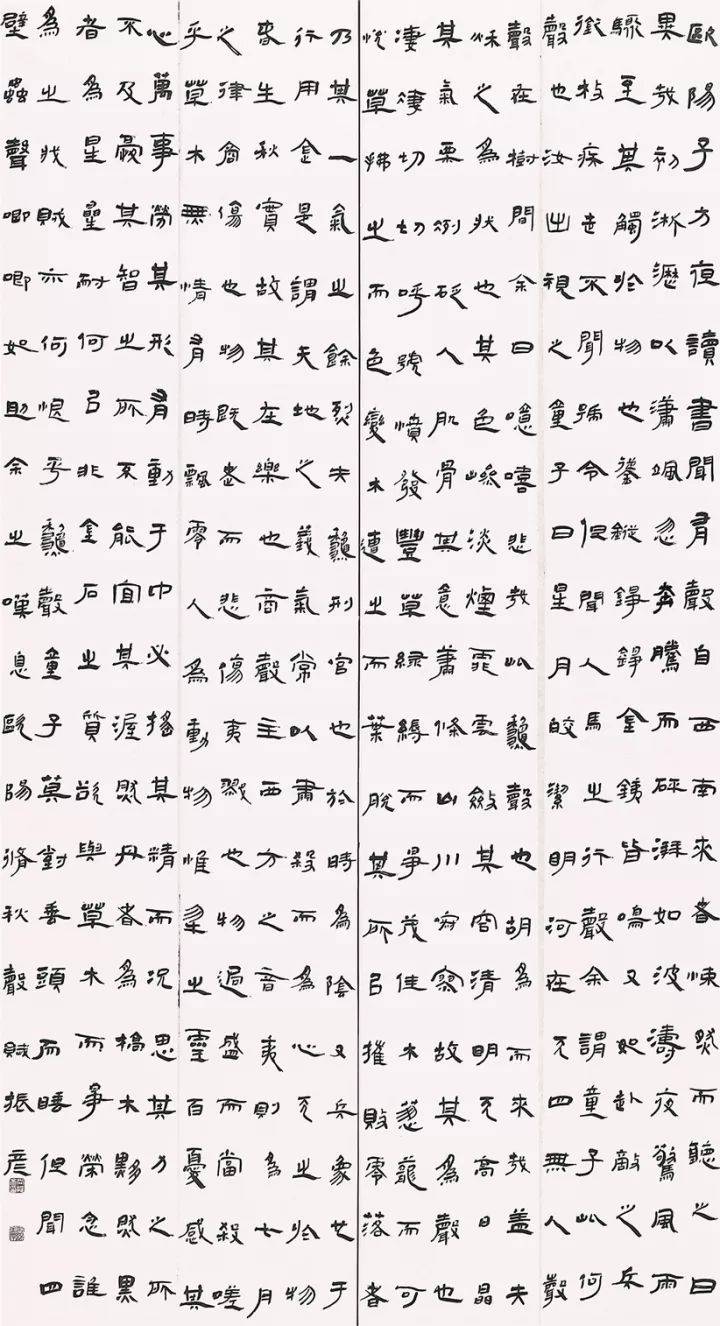 歐陽子方夜讀書聞有聲自西南來者悚然而聽之曰
異哉初淅瀝以瀟颯忽奔騰而砰湃如波濤夜驚風雨
驟至其觸於物也鏦鏦錚錚金鐵皆鳴又如赴敵之兵
銜枚疾走不聞號令但聞人馬之行聲余謂童子此何
聲也汝出視之童子曰星月皎潔明河在天四無人聲
聲在樹間余曰噫嘻悲哉此龝聲也胡為而來哉蓋夫
秌之為狀也其色慘淡煙霏雲斂其容清明天高日晶
其氣栗冽砭人肌骨其意蕭條山川寂寥故其為聲也
淒淒切切呼號憤發豐草綠縟而爭茂佳木蔥蘢而可
悅草拂之而色變木遭之而葉脫其所以摧敗零落者
乃其一氣之餘烈夫龝刑官也於時為陰又兵象也于
行用金是謂天地之義氣常以肅殺而為心天之於物
春生秋實故其在樂也商聲主西方之音夷則為七月
之律商傷也物既老而悲傷夷戮也物過盛而當殺嗟
乎草木無情有時飄零人為動物惟之靈百憂感其
心萬事勞其形有動于中必搖其精而況思其力之所
不及憂其智之所不能宜其渥然丹者為槁木黟然黑
者為星星奈何以非金石之質欲與草木而爭榮念誰
為之戕賊亦何恨乎龝聲童子莫對垂頭而睡但聞四
壁蟲聲唧唧如助余之嘆息歐陽脩秋聲賦振彥